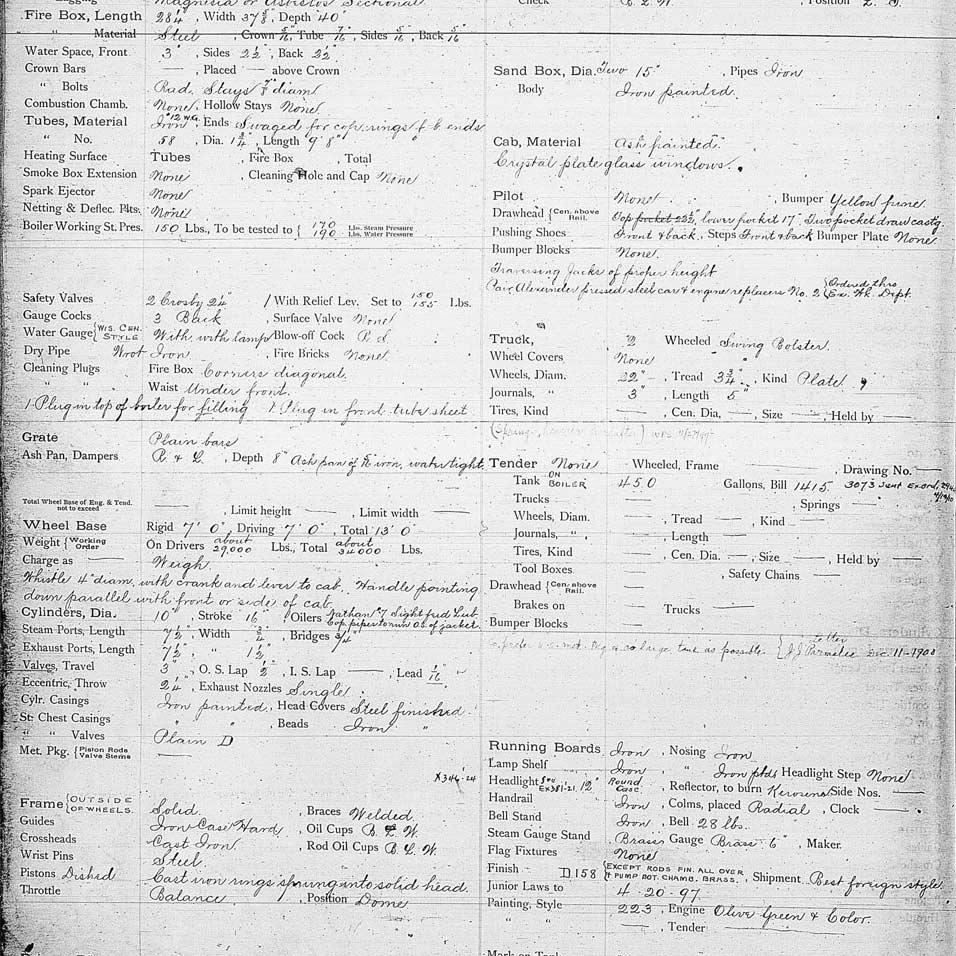 Magnesia or Asbestos Sectional
Fire Box, Length 28¼", Width 37⅝", Depth 40"
" Material Steel, Crown 5/16, Tube 7/16, Sides 5/16, Back 5/16
Water Space, Front 3", Sides 2½", Back 2½"
Crown Bars —, Placed — above Crown
" Bolts Rad. Stays ⅞" diam
Combustion Chamb. None, Hollow Stays None
Tubes, Material Iron #12 W.G., Ends Swaged for cop. rings f. b. ends
" No. 58, Dia. 1¾", Length 9' 8"
Heating Surface Tubes , Fire Box , Total
Smoke Box Extension None, Cleaning Hole and Cap None
Spark Ejector None
Netting & Deflec. Plts. None
Boiler Working St. Pres. 150 Lbs., To be tested to { 170 Lbs. Steam Pressure
190 Lbs. Water Pressure
Safety Valves 2 Crosby 2¼" / With Relief Lev. Set to 150 155 Lbs.
Gauge Cocks 3 Back, Surface Valve None
Water Gauge { WIS. CEN. STYLE With, with lamp, Blow-off Cock R. S.
Dry Pipe Wrot Iron, Fire Bricks None
Cleaning Plugs Fire Box Corners diagonal.
" " Waist Under front.
1 Plug in top of boiler for filling 1 Plug in front tube sheet
Grate Plain bars
Ash Pan, Dampers R & L, Depth 8" Ash pan of iron, water tight
Total Wheel Base of Eng. & Tend. not to exceed —, Limit height —, Limit width —
Wheel Base Rigid 7' 0", Driving 7' 0", Total 13' 0"
Weight { Working Order On Drivers about 29,000 Lbs., Total about 34000 Lbs.
Charge as — Weigh
Whistle 4" diam. with crank and lever to cab. Handle pointing
down parallel with front or side of cab.
Cylinders, Dia. 10", Stroke 16", Oilers Nathan #7 Sight feed Lub.
Cop. pipe to run O.S. of jacket.
Steam Ports, Length 7½", Width ¾", Bridges ¾"
Exhaust Ports, Length 7½", " 1½"
Valves, Travel 3", O. S. Lap ½", I. S. Lap —, Lead 1/16"
Eccentric, Throw 2¼", Exhaust Nozzles Single
Cylr. Casings Iron painted, Head Covers Steel finished
St. Chest Casings " ", Beads Iron "
" " Valves Plain D
Met. Pkg. { Piston Rods Valve Stems —
X346-24
Frame { OUTSIDE OF WHEELS. Solid, Braces Welded.
Guides Iron Case Hard, Oil Cups B. L. W.
Crossheads Cast Iron, Rod Oil Cups B. L. W.
Wrist Pins Steel.
Pistons Dished Cast iron rings sprung into solid head.
Throttle Balance, Position Dome
Check
Sand Box, Dia. Two 15", Pipes Iron
Body Iron painted.
Cab, Material Ash painted.
Crystal plate glass windows.
Pilot None, Bumper Yellow pine.
Drawhead { Cen. above Rail. Top pocket 22½", lower pocket 17" Two pocket draw castg.
Pushing Shoes Front & back, Steps Front & back Bumper Plate None
Bumper Blocks None.
Traversing Jacks of proper height
Pair Alexander pressed steel car & engine replacers No. 2 { Ordered thro Ex. Wk. Dept.
Truck, 2 Wheeled Swing Bolster.
Wheel Covers None
Wheels, Diam. 22", Tread 3¾", Kind Plate
Journals, " 3", Length 5"
Tires, Kind —, Cen. Dia, —, Size —, Held by —
Tender None — Wheeled, Frame —, Drawing No. —
Tank ON BOILER 450 Gallons, Bill 1415 3073 Sent Ex ord.
Trucks —, Springs —
Wheels, Diam. —, Tread —, Kind —
Journals, " , —, Length —
Tires, Kind —, Cen. Dia. —, Size —, Held by —
Tool Boxes —, Safety Chains —
Drawhead { Cen. above Rail. —
Brakes on — Trucks —
Bumper Blocks —
large tank as possible. { Letter J. J. Parmelee Dec. 11-1900
Running Boards Iron, Nosing Iron
Lamp Shelf Iron, " Iron ptd. Headlight Step None
Headlight See Ex381-21. 12" Round Case, Reflector, to burn Kerosene Side Nos. —
Handrail Iron, Colms, placed Radial, Clock —
Bell Stand Iron, Bell 28 lbs.
Steam Gauge Stand Brass Gauge Brass 6", Maker.
Flag Fixtures None
Finish D158 { EXCEPT RODS FIN. ALL OVER & PUMP BOT. CHAMB. BRASS., Shipment Best foreign style
Junior Laws to 4-20-97.
Painting, Style 223, Engine Olive Green & Color.
" " —, Tender —
Mark on Tank